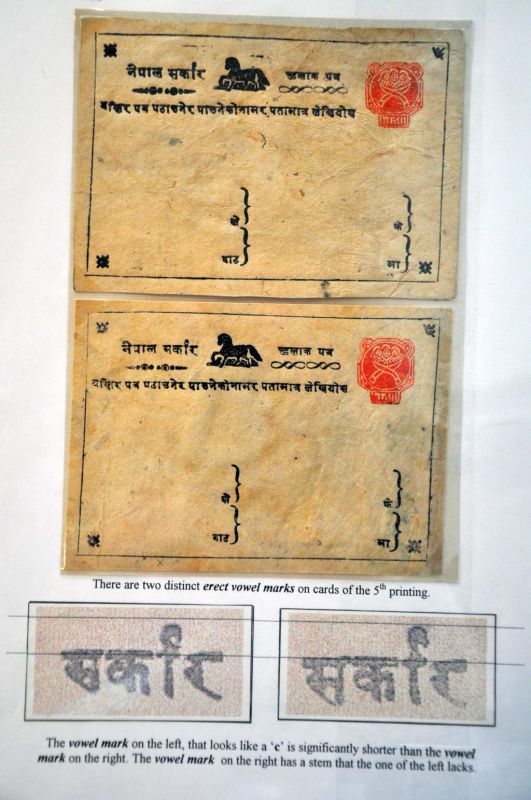 नेपाल सर्कार हुलाक पत्र
पत्र पठाउनेर पाउनेकोनामर पतामात्र लेखियोस
बाट मा
नेपाल सर्कार हुलाक पत्र
पत्र पठाउनेर पाउनेकोनामर पतामात्र लेखियोस
बाट मा
There are two distinct erect vowel marks on cards of the 5th printing.
सर्कार सर्कार
The vowel mark on the left, that looks like a 'c' is significantly shorter than the vowel
mark on the right. The vowel mark on the right has a stem that the one of the left lacks.